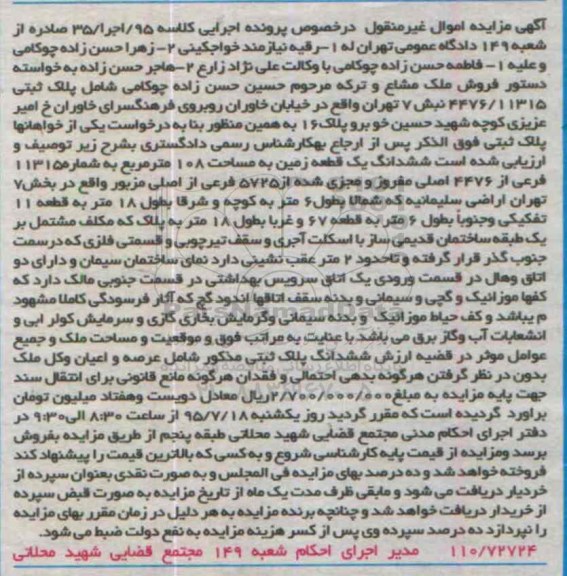 آگهی مزایده اموال غیرمنقول درخصوص پرونده اجرایی کلاسه ۹۵/اجرا/۳۵ صادره از
شعبه ۱۴۹ دادگاه عمومی تهران له ۱-رقیه نیازمند خواجکینی ۲- زهرا حسن زاده چوکامی
و علیه ۱- فاطمه حسن زاده چوکامی با وکالت علی نژاد زارع ۲-هاجر حسن زاده به خواسته
دستور فروش ملک مشاع و ترکه مرحوم حسین حسن زاده چوکامی شامل پلاک ثبتی
۴۴۷۶/۱۱۳۱۵ نبش ۷ تهران واقع در خیابان خاوران روبروی فرهنگسرای خاوران خ امیر
عزیزی کوچه شهید حسین خو برو پلاک۱۶ به همین منظور بنا به درخواست یکی از خواهانها
پلاک ثبتی فوق الذکر پس از ارجاع بهکارشناس رسمی دادگستری بشرح زیر توصیف و
ارزیابی شده است ششدانگ یک قطعه زمین به مساحت ۱۰۸ مترمربع به شماره۱۱۳۱۵
فرعی از ۴۴۷۶ اصلی مفروز و مجزی شده از۵۷۲۵ فرعی از اصلی مزبور واقع در بخش۷
تهران اراضی سلیمانیه که شمالا بطول۶ متر به کوچه و شرقا بطول ۱۸ متر به قطعه ۱۱
تفکیکی وجنوبا بطول ۶ متر به قطعه ۶۷ و غربا بطول ۱۸ متر به پلاک که مکلف مشتمل بر
یک طبقه ساختمان قدیمی ساز با اسکلت آجری و سقف تیرچوبی و قسمتی فلزی که درسمت
جنوب گذر قرار گرفته و تاحدود ۲ متر عقب نشینی دارد نمای ساختمان سیمان و دارای دو
اتاق وهال در قسمت ورودی یک اتاق سرویس بهداشتی در قسمت جنوبی مالک دارد که
کفها موزائیک و گچی و سیمانی و بدنه سقف اتاقها اندود گچ که آثار فرسودگی کاملا مشهود
م یباشد و کف حیاط موزائیک و بدنه سیمانی وگرمایش بخاری گازی و سرمایش کولر ابی و
انشعابات آب وگاز برق می باشد با عنایت به مراتب فوق و موقعیت و مساحت ملک و جمیع
عوامل موثر در قضیه ارزش ششدانگ پلاک ثبتی مذکور شامل عرصه و اعیان وکل ملک
بدون در نظر گرفتن هرگونه بدهی احتمالی و فقدان هرگونه مانع قانونی برای انتقال سند
جهت پایه مزایده به مبلغ۲/۷۰۰/۰۰۰/۰۰۰ریال معادل دویست وهفتاد میلیون تومان
براورد گردیده است که مقرر گردید روز یکشنبه۹۵/۷/۱۸ از ساعت ۸:۳۰ الی۹:۳۰ در
دفتر اجرای احکام مدنی مجتمع قضایی شهید محلاتی طبقه پنجم از طریق مزایده بفروش
برسد ومزایده از قیمت پایه کارشناسی شروع و به کسی که بالاترین قیمت را پیشنهاد کند
فروخته خواهد شد و ده درصد بهای مزایده فی المجلس و به صورت نقدی بعنوان سپرده از
خریدار دریافت می شود و مابقی ظرف مدت یک ماه از تاریخ مزایده به صورت قبض سپرده
از خریدار دریافت خواهد شد و چنانچه برنده مزایده به هر دلیل در زمان مقرر بهای مزایده
را نپردازد ده درصد سپرده وی پس از کسر هزینه مزایده به نفع دولت ضبط می شود.
۱۱۰/۷۲۷۲۴ مدیر اجرای احکام شعبه ۱۴۹ مجتمع قضایی شهید محلاتی